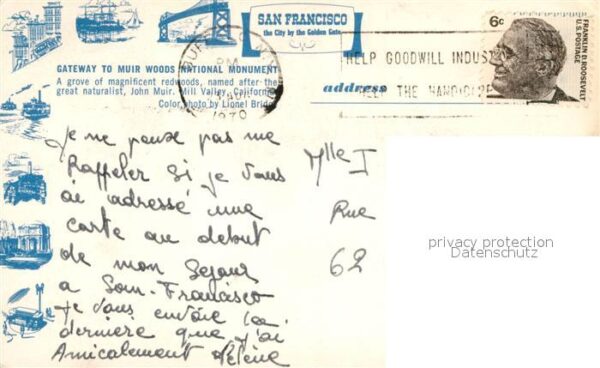 SAN FRANCISCO
the City by the Golden Gate
6c
FRANKLIN D. ROOSEVELT
U.S. POSTAGE
PM
1970
HELP GOODWILL INDUS
HELP THE HANDICAP
GATEWAY TO MUIR WOODS NATIONAL MONUMENT
A grove of magnificent redwoods, named after the
great naturalist, John Muir. Mill Valley, California
Color photo by Lionel Bridg
address
je ne pense pas me
Rappeler si je vous
ai adressé une
carte au debut
de mon Sejour
a San-Francisco
je vous envoie la
derniere que j'ai
Amicalement Hélène
Mlle I
Rue
62
privacy protection
Datenschutz